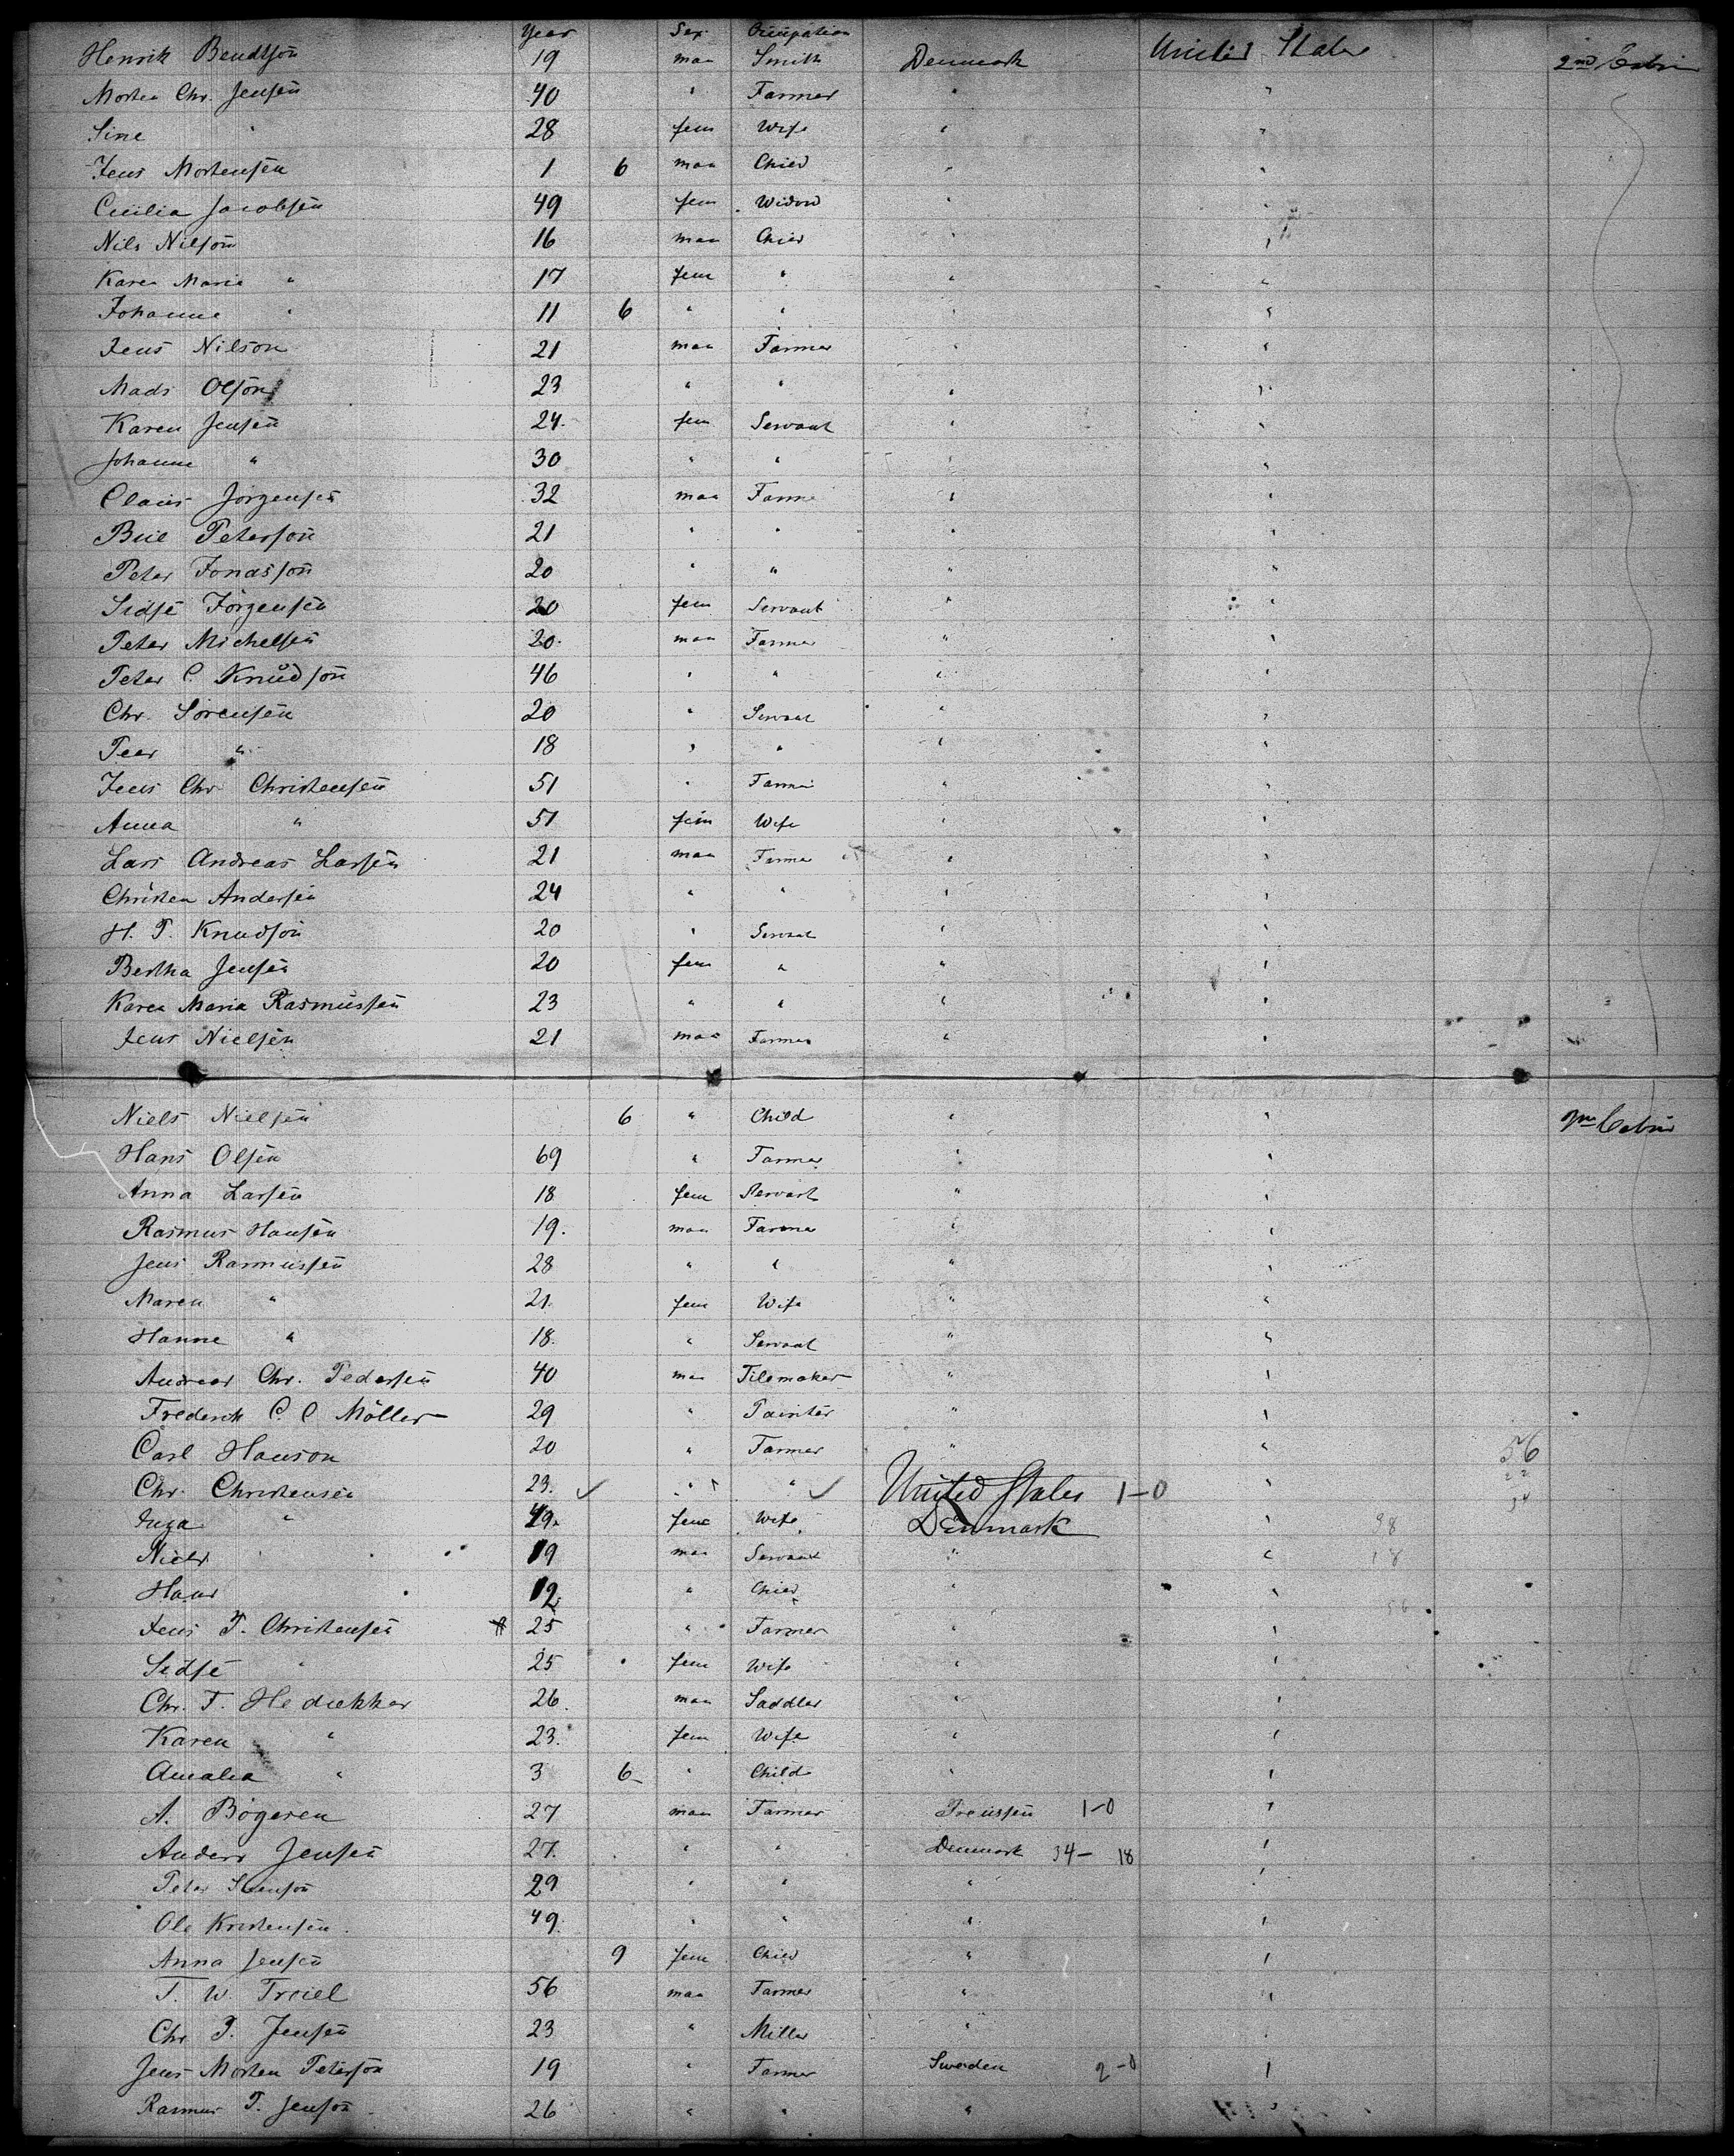 Year Sex Occupation
Henrik Bendtson 19 man Smith Denmark United States 2nd Cabin
Morten Chr. Jensen 40 " Farmer " "
Sine " 28 fem Wife " "
Jens Mortensen 1 6 man Child " "
Cecilia Jacobsen 49 fem Widow " "
Nils Nilson 16 man Child " "
Karen Marie " 17 fem " " "
Johanne " 11 6 " " " "
Jens Nilson 21 man Farmer " "
Mads Olson 23 " " " "
Karen Jensen 24. fem Servant " "
Johanne " 30 " " " "
Claus Jörgensen 32 man Farme " "
Peterson 21 " " " "
Peter Jonasson 20 " " " "
Sidse Jörgensen 20 fem Servant " "
Peter Michelsen 20. man Farmer " "
Peter C. Knudson 46 " " " "
Chr. Sörensen 20 " Servant " "
Peer " 18 " " " "
Jens Chr Christensen 51 " Farmer " "
Anna " 51 fem Wife " "
Lars Andreas Larsen 21 man Farmer " "
Christen Andersen 24 " " " "
H. P. Knudson 20 " Servant " "
Bertha Jensen 20 fem " " "
Karen Maria Rasmussen 23 " " " "
Jens Nielsen 21 man Farmer " "
Niels Nielsen 6 " Child " " Cabin
Hans Olsen 69 " Farmer " "
Anna Larsen 18 fem Servant " "
Rasmus Hansen 19. man Farmer " "
Jens Rasmussen 28 " " " "
Maren " 21. fem Wife " "
Hanne " 18. " Servant " "
Andreas Chr. Pedersen 40 man Tilemaker " "
Frederik C. C Möller 29 " Painter " "
Carl Hanson 20 " Farmer " " 56
Chr. Christensen 23. " " United States 1-0 " 22
Inga " 49. fem Wife Denmark " 34 98
Niels " 19 man Servant " " 18
Hans 12 " Child " " 56
Jens P. Christensen 25 " Farmer " "
Sidse " 25 fem Wife " "
Chr. F. 26. man Saddler " "
Karen " 23. fem Wife " "
Amalia " 3 6 " Child " "
A. Bögeren 27 man Farmer Preussen 1-0 "
Anders Jensen 27. " " Denmark 34-18 "
Peter 29 " " " "
Ole Kristensen 49. " " " "
Anna Jensen 9 fem Child " "
T. W. 56 man Farmer " "
Chr P. Jensen 23 " Miller " "
Jens Morten Peterson 19 " Farmer Sweden 2-0 "
Rasmus P. Jenson 26 " " " "